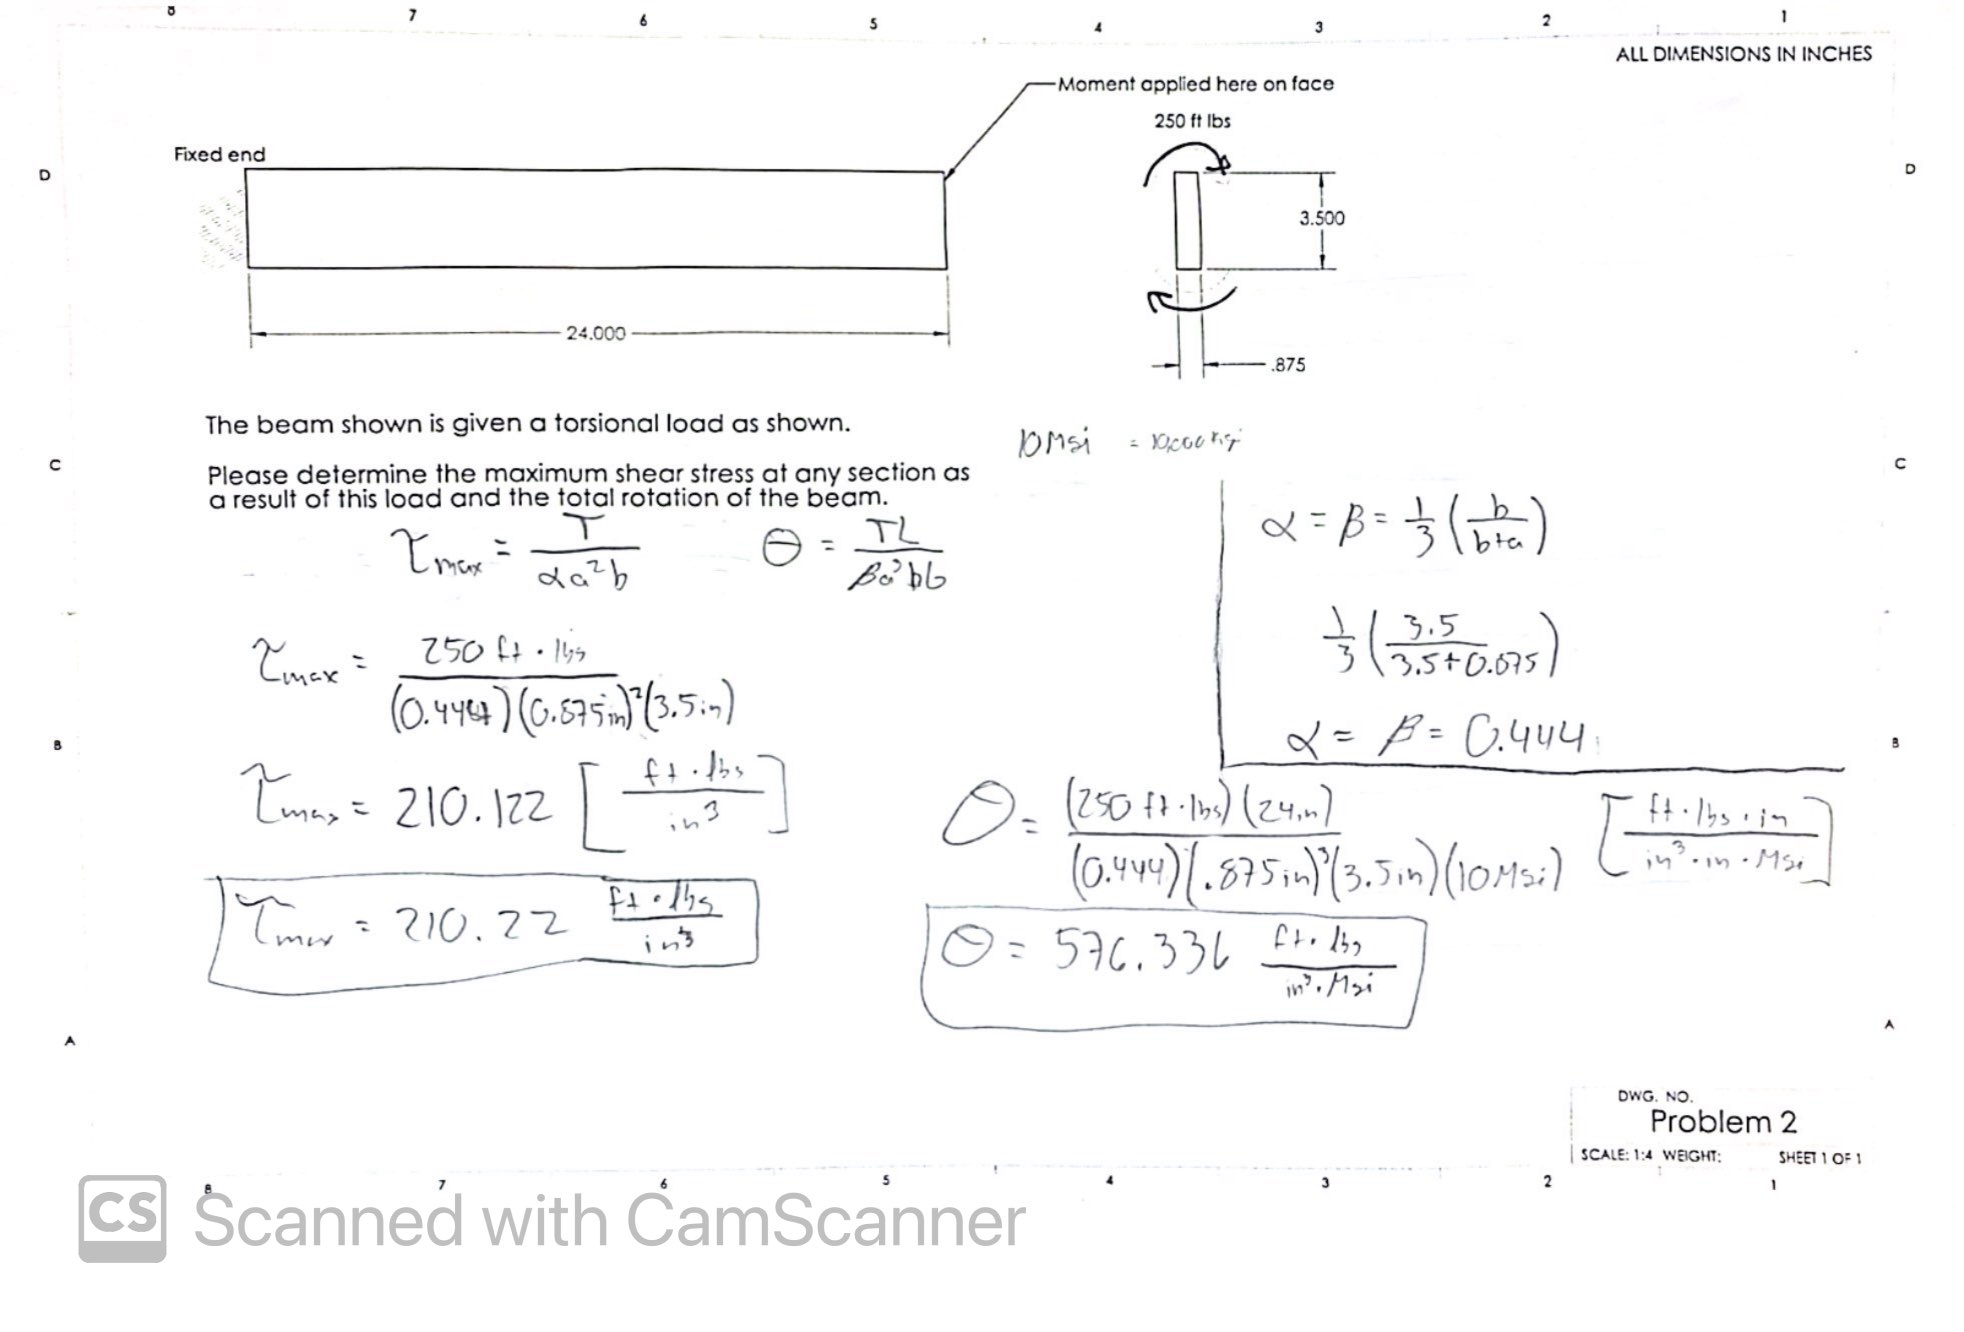 8 7 6 5 4 3 2 1
ALL DIMENSIONS IN INCHES
Moment applied here on face
250 ft lbs
Fixed end
D D
3.500
24.000
.875
The beam shown is given a torsional load as shown.
10 Msi = 10,000 ksi
C C
Please determine the maximum shear stress at any section as
a result of this load and the total rotation of the beam.
τmax = T / αa²b
θ = TL / βa³bG
α = β = 1/3 (b / b+a)
τmax = 250 ft·lbs / (0.444)(0.875in)²(3.5in)
1/3 (3.5 / 3.5+0.875)
α = β = 0.444
B B
τmax = 210.122 [ft·lbs / in³]
θ = (250 ft·lbs)(24in) / (0.444)(.875in)³(3.5in)(10Msi) [ft·lbs·in / in³·in·Msi]
τmax = 210.22 ft·lbs / in³
θ = 576.336 ft·lbs / in³·Msi
A A
DWG. NO.
Problem 2
SCALE: 1:4 WEIGHT: SHEET 1 OF 1
8 7 6 5 4 3 2 1
CS Scanned with CamScanner